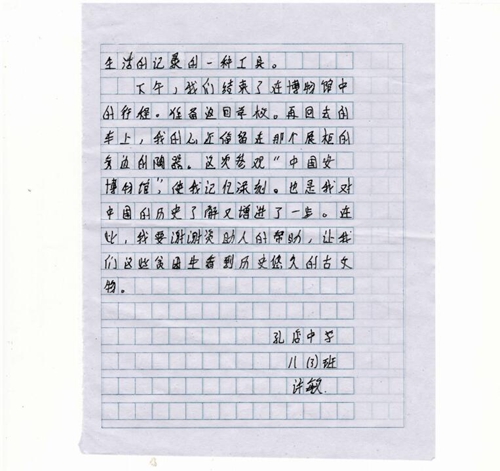 生活的记录的一种工具。
下午，我们结束了在博物馆中
的行程。准备返回学校。再回去的
车上，我的心还停留在那个展柜的
旁边的陶器。这次参观“中国文
博物馆”，使我记忆深刻。也是我对
中国的历史了解又增进了一步。在
此，我要谢谢资助人的帮助，让我
们这些贫困生看到历史悠久的古文
物。
孔店中学
八（3）班
许敏